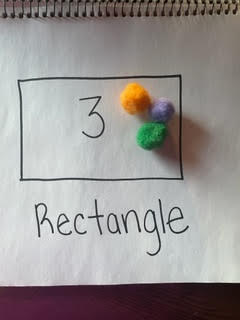 3
Rectangle